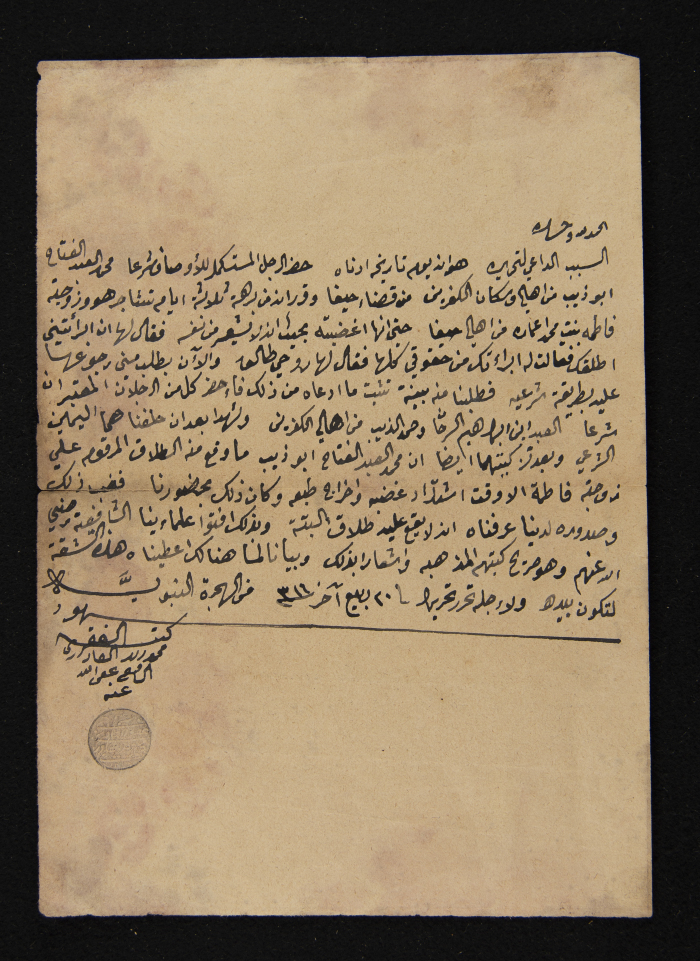 الحمد لله وحده
السبب الداعي لتحريره هو انه يوم تاريخه ادناه حضر الرجل المستكمل للأوصاف شرعا محمد العبد الفتاح
ابو ذيب من اهالي وسكان الكفرين من قضاء حيفا وقرر انه من برهة ثلاثة ايام تشاجر هو وزوجته
فاطمه بنت محمد اعماره من اهالي حيفا حتى انها اغضبته بحيث انه لا يشعر من نفسه فقال لها ان ابرأتيني
اطلقك فقالت له ابرائتك من حقوقي كلها فقال لها روحي طالقه والآن يطلب منى رجوعها
عليه بطريقة شرعيه فطلبنا منه بينة تثبت ما ادعاه من ذلك فأحضر كلا من الرجلان المعتبران
شرعا العبد ابن ابراهيم الرحّا وحمد الذيب من اهالي الكفرين وشهدا بعد ان حلفنا هما اليمين
الشرعي وبعد تزكيتهما ايضا ان محمد العبد الفتاح ابو ذيب ما وقع منه الطلاق المرقوم على
زوجته فاطمة الا وقت اشتداد غضبه واخراج طبعه وكان ذلك بحضورنا فعند ذلك
وصدوره لدينا عرفناه انه لا يقع عليه طلاق البتة وبذلك افتوا علماءينا الشافعية رضي
الله عنهم وهو صريح كتبهم المذهبه واشعارا بذلك وبيانا لما هنالك اعطيناه هذه الشقة
لتكون بيده ولاجله تحرر تحريرا في ٢٠ ربيع آخر ٣١٦ من الهجرة النبوية
كتبه الفقير
محمد القادري
الرافعي عفى الله
عنه